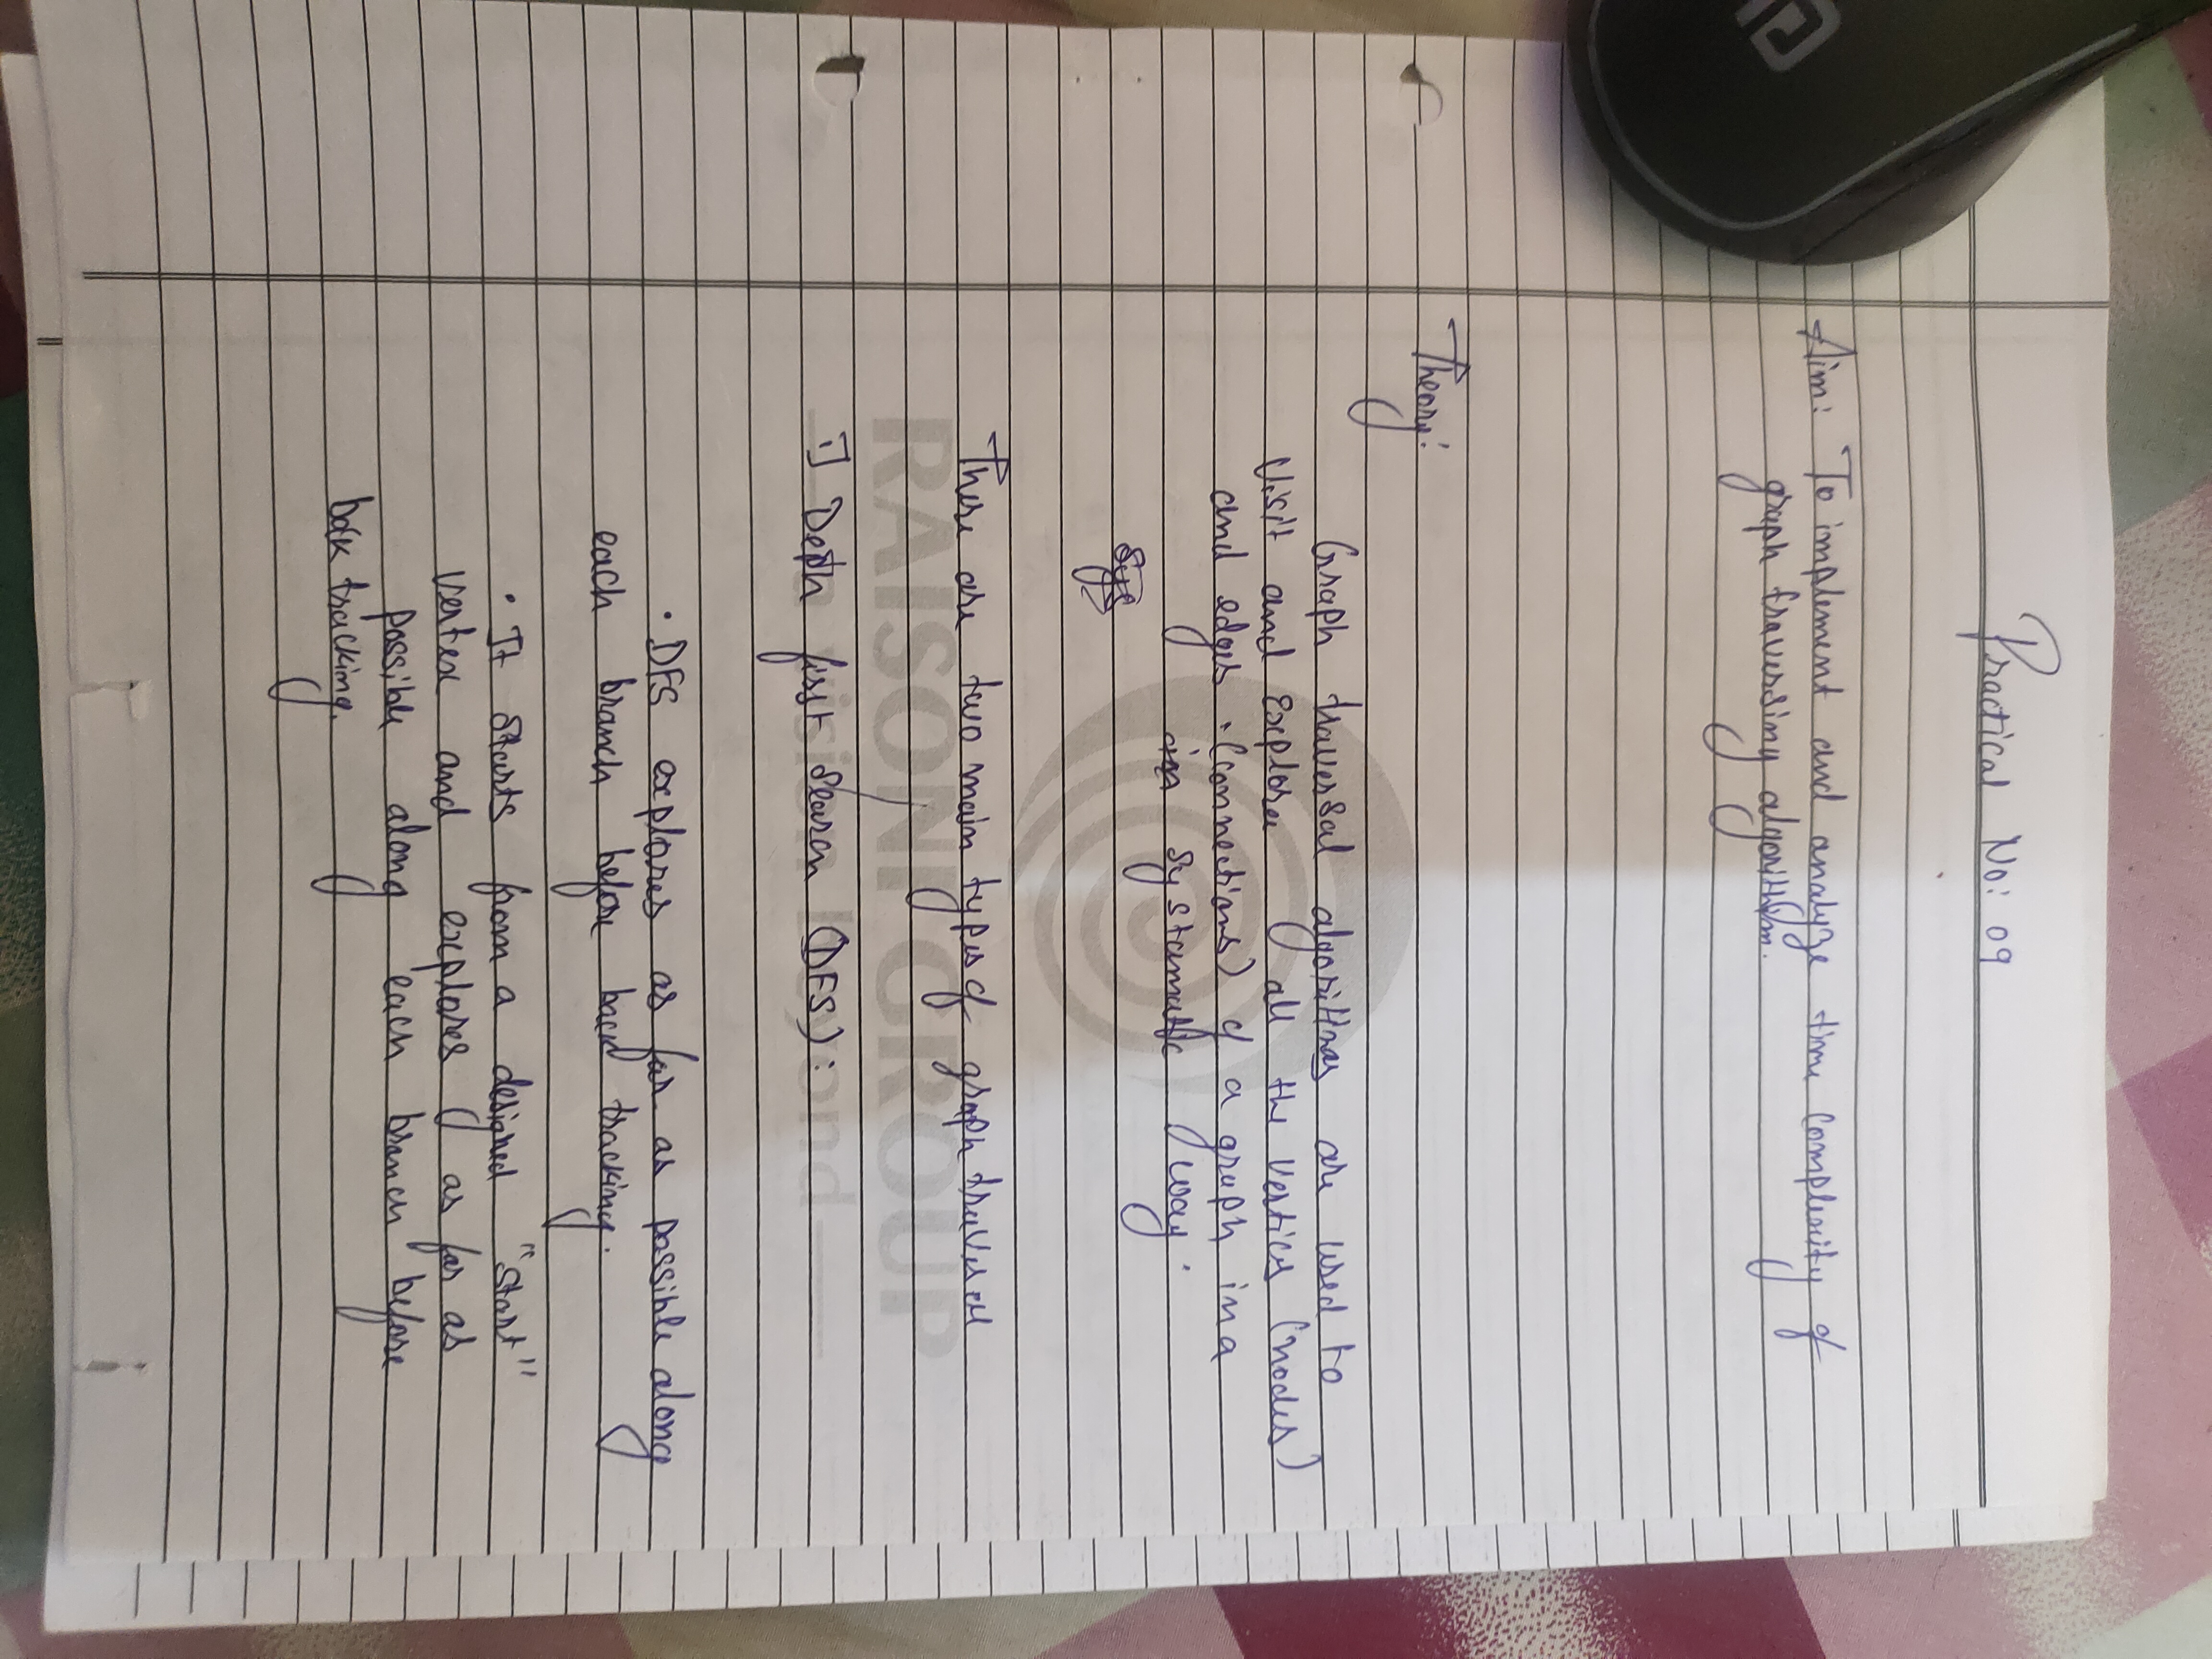 Practical No: 09
Aim: To implement and analyze time complexity of
graph traversing algorithm.
Theory:
Graph traversal algorithms are used to
visit and explore all the vertics (nodes)
and edges (connections) of a graph in a
in systamatic way.
Sys
There are two main types of graph traversal
RAISONI GROUP
a vision beyond
1] Depth first search (DFS):
• DFS explores as far as possible along
each branch before back tracking.
• It starts from a designed "start"
vertex and explores as far as
possible along each branch before
back tracking.